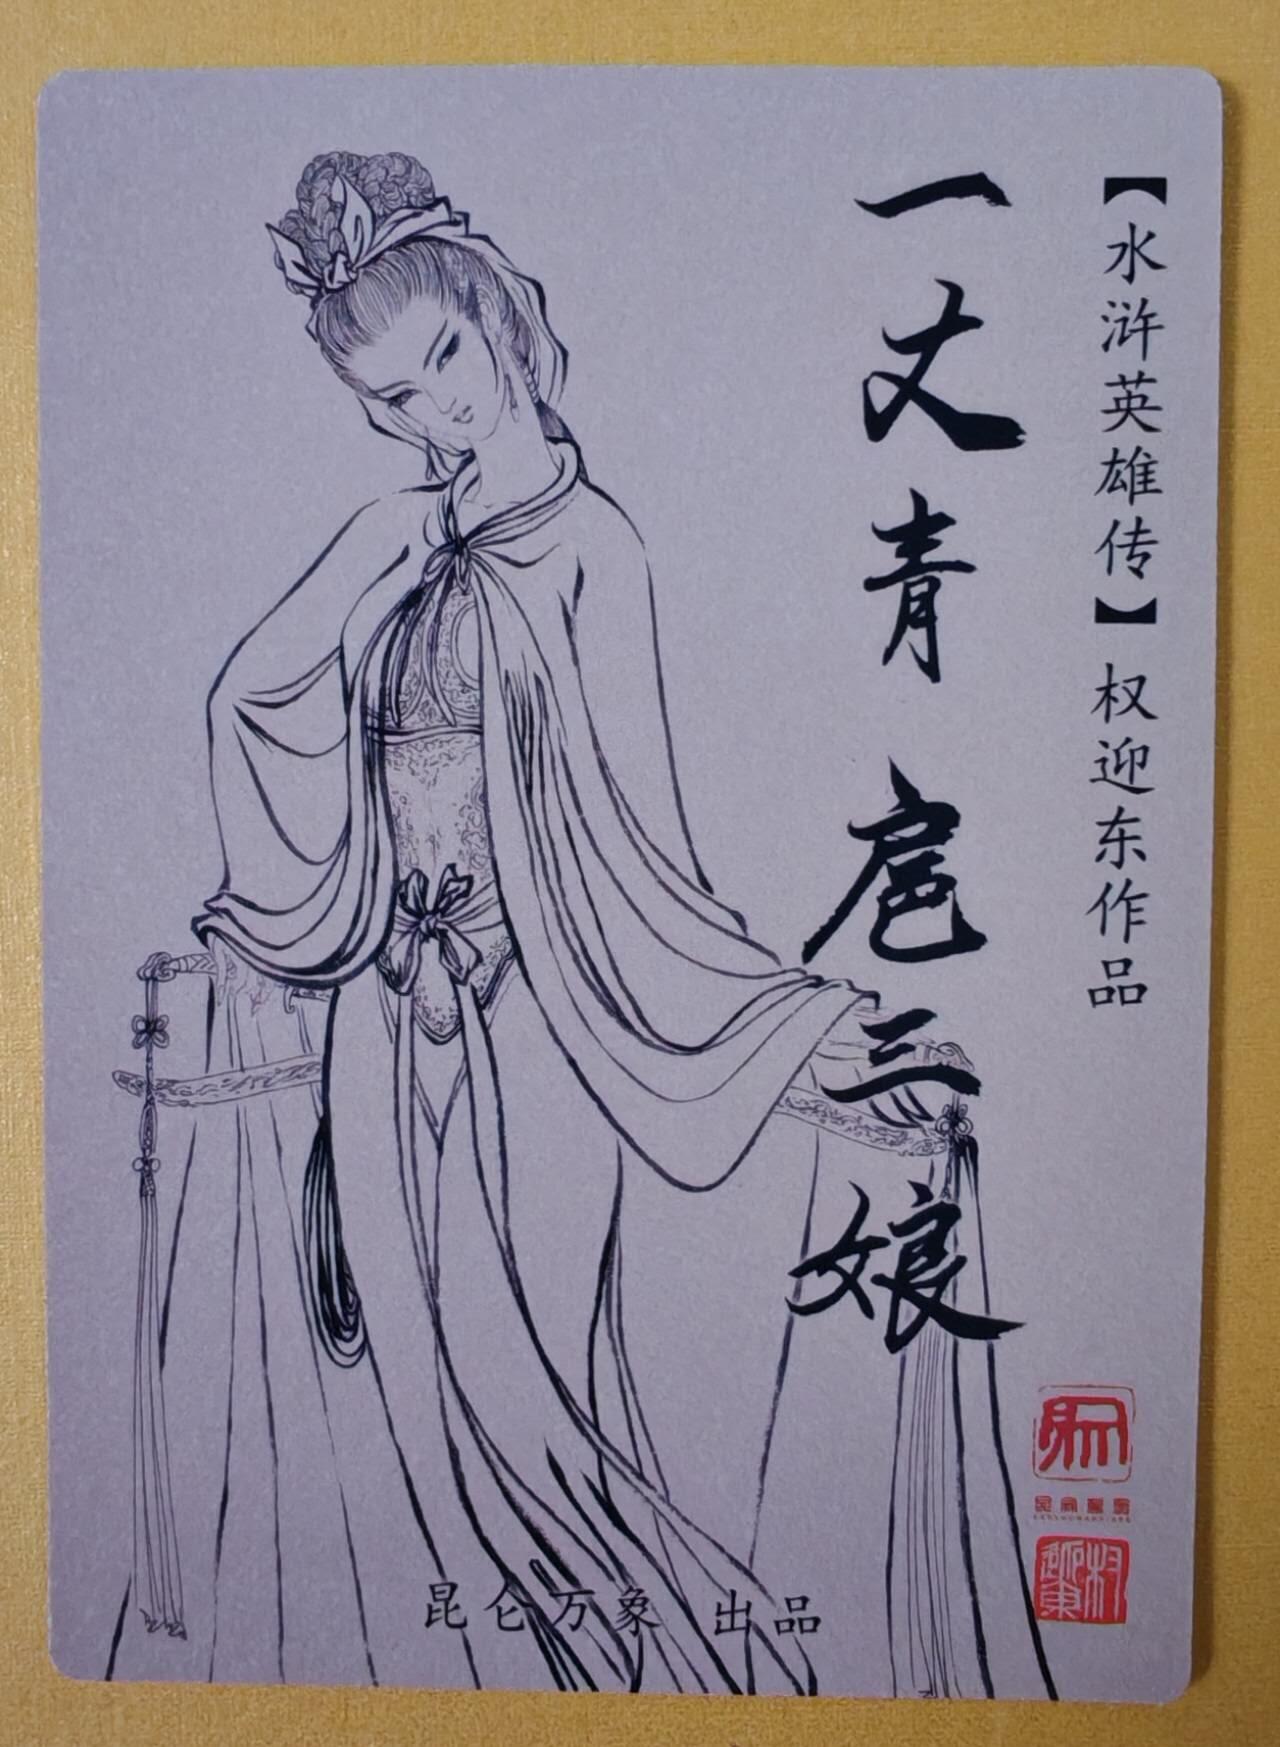 【水浒英雄传】权迎东作品
一丈青 扈三娘
昆仑万象 出品